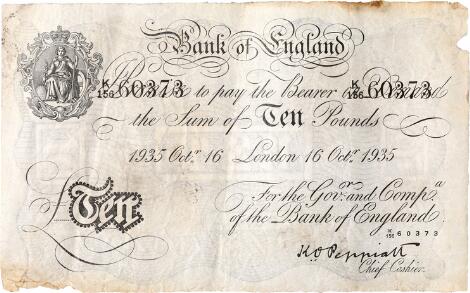 Bank of England
K/156 60373 K/156 60373
Promise to pay the Bearer on Demand
the Sum of Ten Pounds
1935 Octr. 16 London 16 Octr. 1935
For the Govr. and Compa.
of the Bank of England.
£Ten
K/156 60373
K.O. Peppiatt
Chief Cashier.